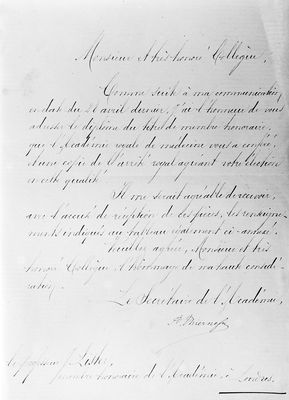 Monsieur et très honoré Collègue,
Comme suite à ma communication
en date du 26 avril dernier, j'ai l'honneur de vous
adresser le diplôme du titre de membre honoraire,
que l'Académie royale de médecine vous a conféré,
et une copie de l'arrêté royal agréant votre élection
en cette qualité.
Il me serait agréable de recevoir,
avec l'accusé de réception de ces pièces, les renseigne-
ments indiqués au tableau également ci-annexé.
Veuillez agréer, Monsieur et très
honoré Collègue, l'hommage de ma haute considé-
ration.
Le Secrétaire de l'Académie,
professeur J. Lister,
membre honoraire de l'Académie, à Londres.